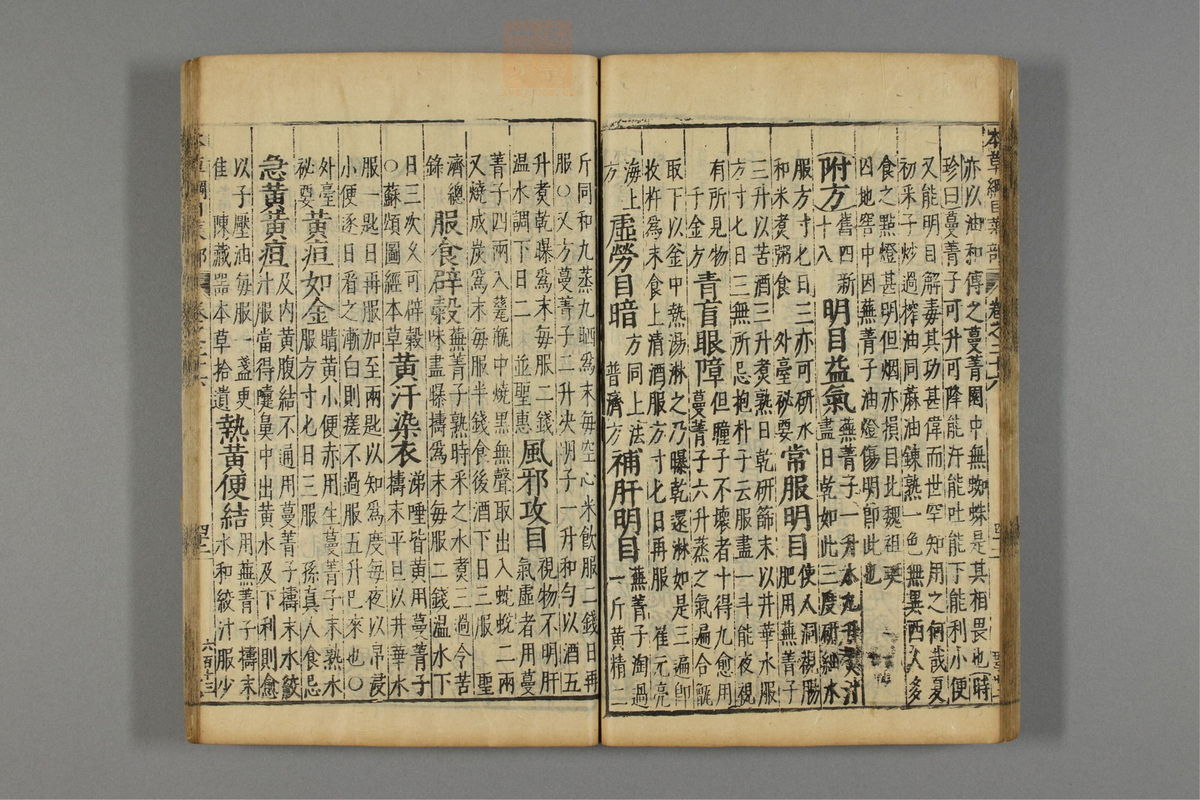 本草綱目菜部 卷之二十六
亦以油和傅之蔓菁園中無蜘蛛是其相畏也時
珍曰蔓菁子可升可降能汗能吐能下能利小便
又能明目解毒其功甚偉而世罕知用之何哉夏
初采子炒過榨油同蔴油鍊熟一色無異西人多
食之㸃燈甚明但烟亦損目北魏祖珽
囚地窖中因蕪菁子油燈傷明即此也
附方 舊四新十八 明目益氣 蕪菁子一升水九升煑汁盡日乾如此三度研細水
服方寸匕日三亦可研水和米煑粥食 外臺秘要 常服明目 使人洞視腸肥用蕪菁子
三升以苦酒三升煑熟日乾研篩末以井華水服
方寸匕日三無所忌抱朴子云服盡一斗能夜視
有所見物 千金方 青盲眼障 但瞳子不壞者十得九愈用蔓菁子六升蒸之氣遍合甑
取下以釜中熱湯淋之乃曝乾還淋如是三遍即
收杵爲末食上清酒服方寸匕日再服 崔元亮
海上方 虛勞目暗 方同上法 普濟方 補肝明目 蕪菁子淘過一斤黄精二
斤同和九蒸九晒爲末每空心米飲服二錢日再
服〇又方蔓菁子二升决明子一升和勻以酒五
升煑乾曝爲末每服二錢温水調下日二 並聖惠 風邪攻目 視物不明肝氣虛者用蔓
菁子四兩入甆瓶中燒黑無聲取出入蛇蛻二兩
又燒成炭爲末每服半錢食後酒下日三服 聖
濟總錄 服食辟穀 蕪菁子熟時采之水煑三過令苦味盡曝擣爲末每服二錢温水下
日三次久可辟穀〇蘇頌圖經本草 黄汗染衣 涕唾皆黄用蔓菁子擣末平旦以井華水
服一匙日再服加至兩匙以知爲度每夜以帛浸
小便逐日看之漸白則瘥不過服五升已來也〇
外臺秘要 黄疸如金 睛黄小便赤用生蔓菁子末熟水服方寸匕日三服 孫真人食忌
急黄黄疸 及内黄腹結不通用蔓菁子擣末水絞汁服當得嚏鼻中出黄水及下利則愈
以子壓油每服一盞更佳 陳藏器本草拾遺 熱黄便結 用蕪菁子擣末水和絞汁服少